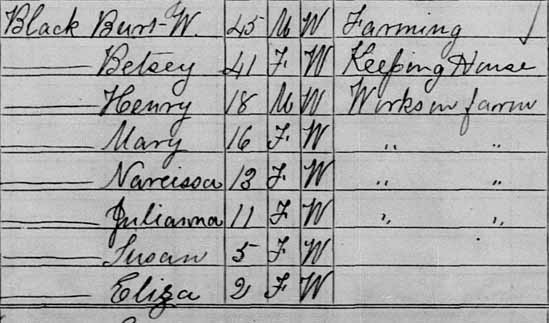 Black Burt W. 45 M W Farming
—— Betsey 41 F W Keeping House
—— Henry 18 M W Works on farm
—— Mary 16 F W " "
—— Narcissa 13 F W " "
—— Julianna 11 F W " "
—— Susan 5 F W
—— Eliza 2 F W